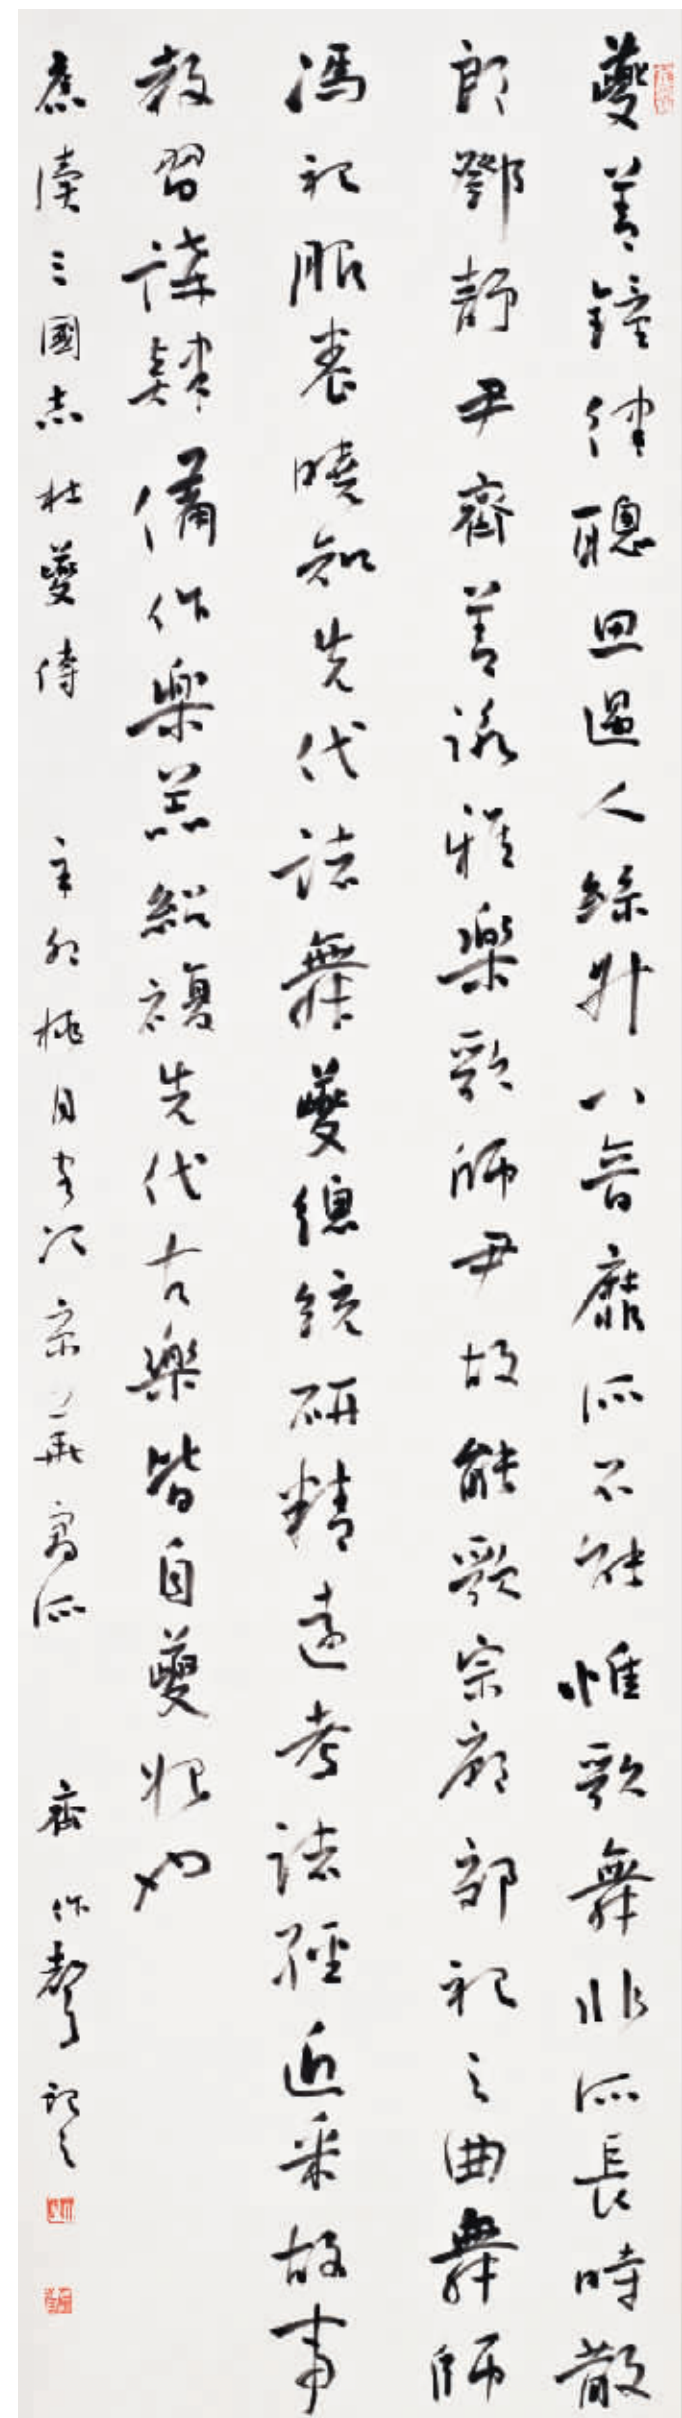 夔善鐘律聰思過人絲竹八音靡所不能惟歌舞非所長時散
郎鄧靜尹齊善詠雅樂歌師尹故能歌宗廟郊祀之曲舞師
馮祀服養曉知先代諸舞夔總統研精遠考諸經近采故事
教習講肄備作樂器紹復先代古樂皆自夔始也
夜讀三國志杜夔傳
辛卯桃月客次京華寓所
齊作聲記之